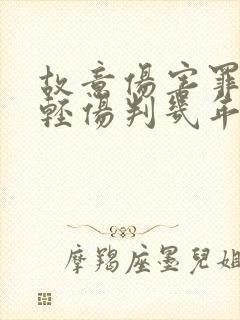 故意傷害罪
輕傷判幾年
摩羯座墨兒姐